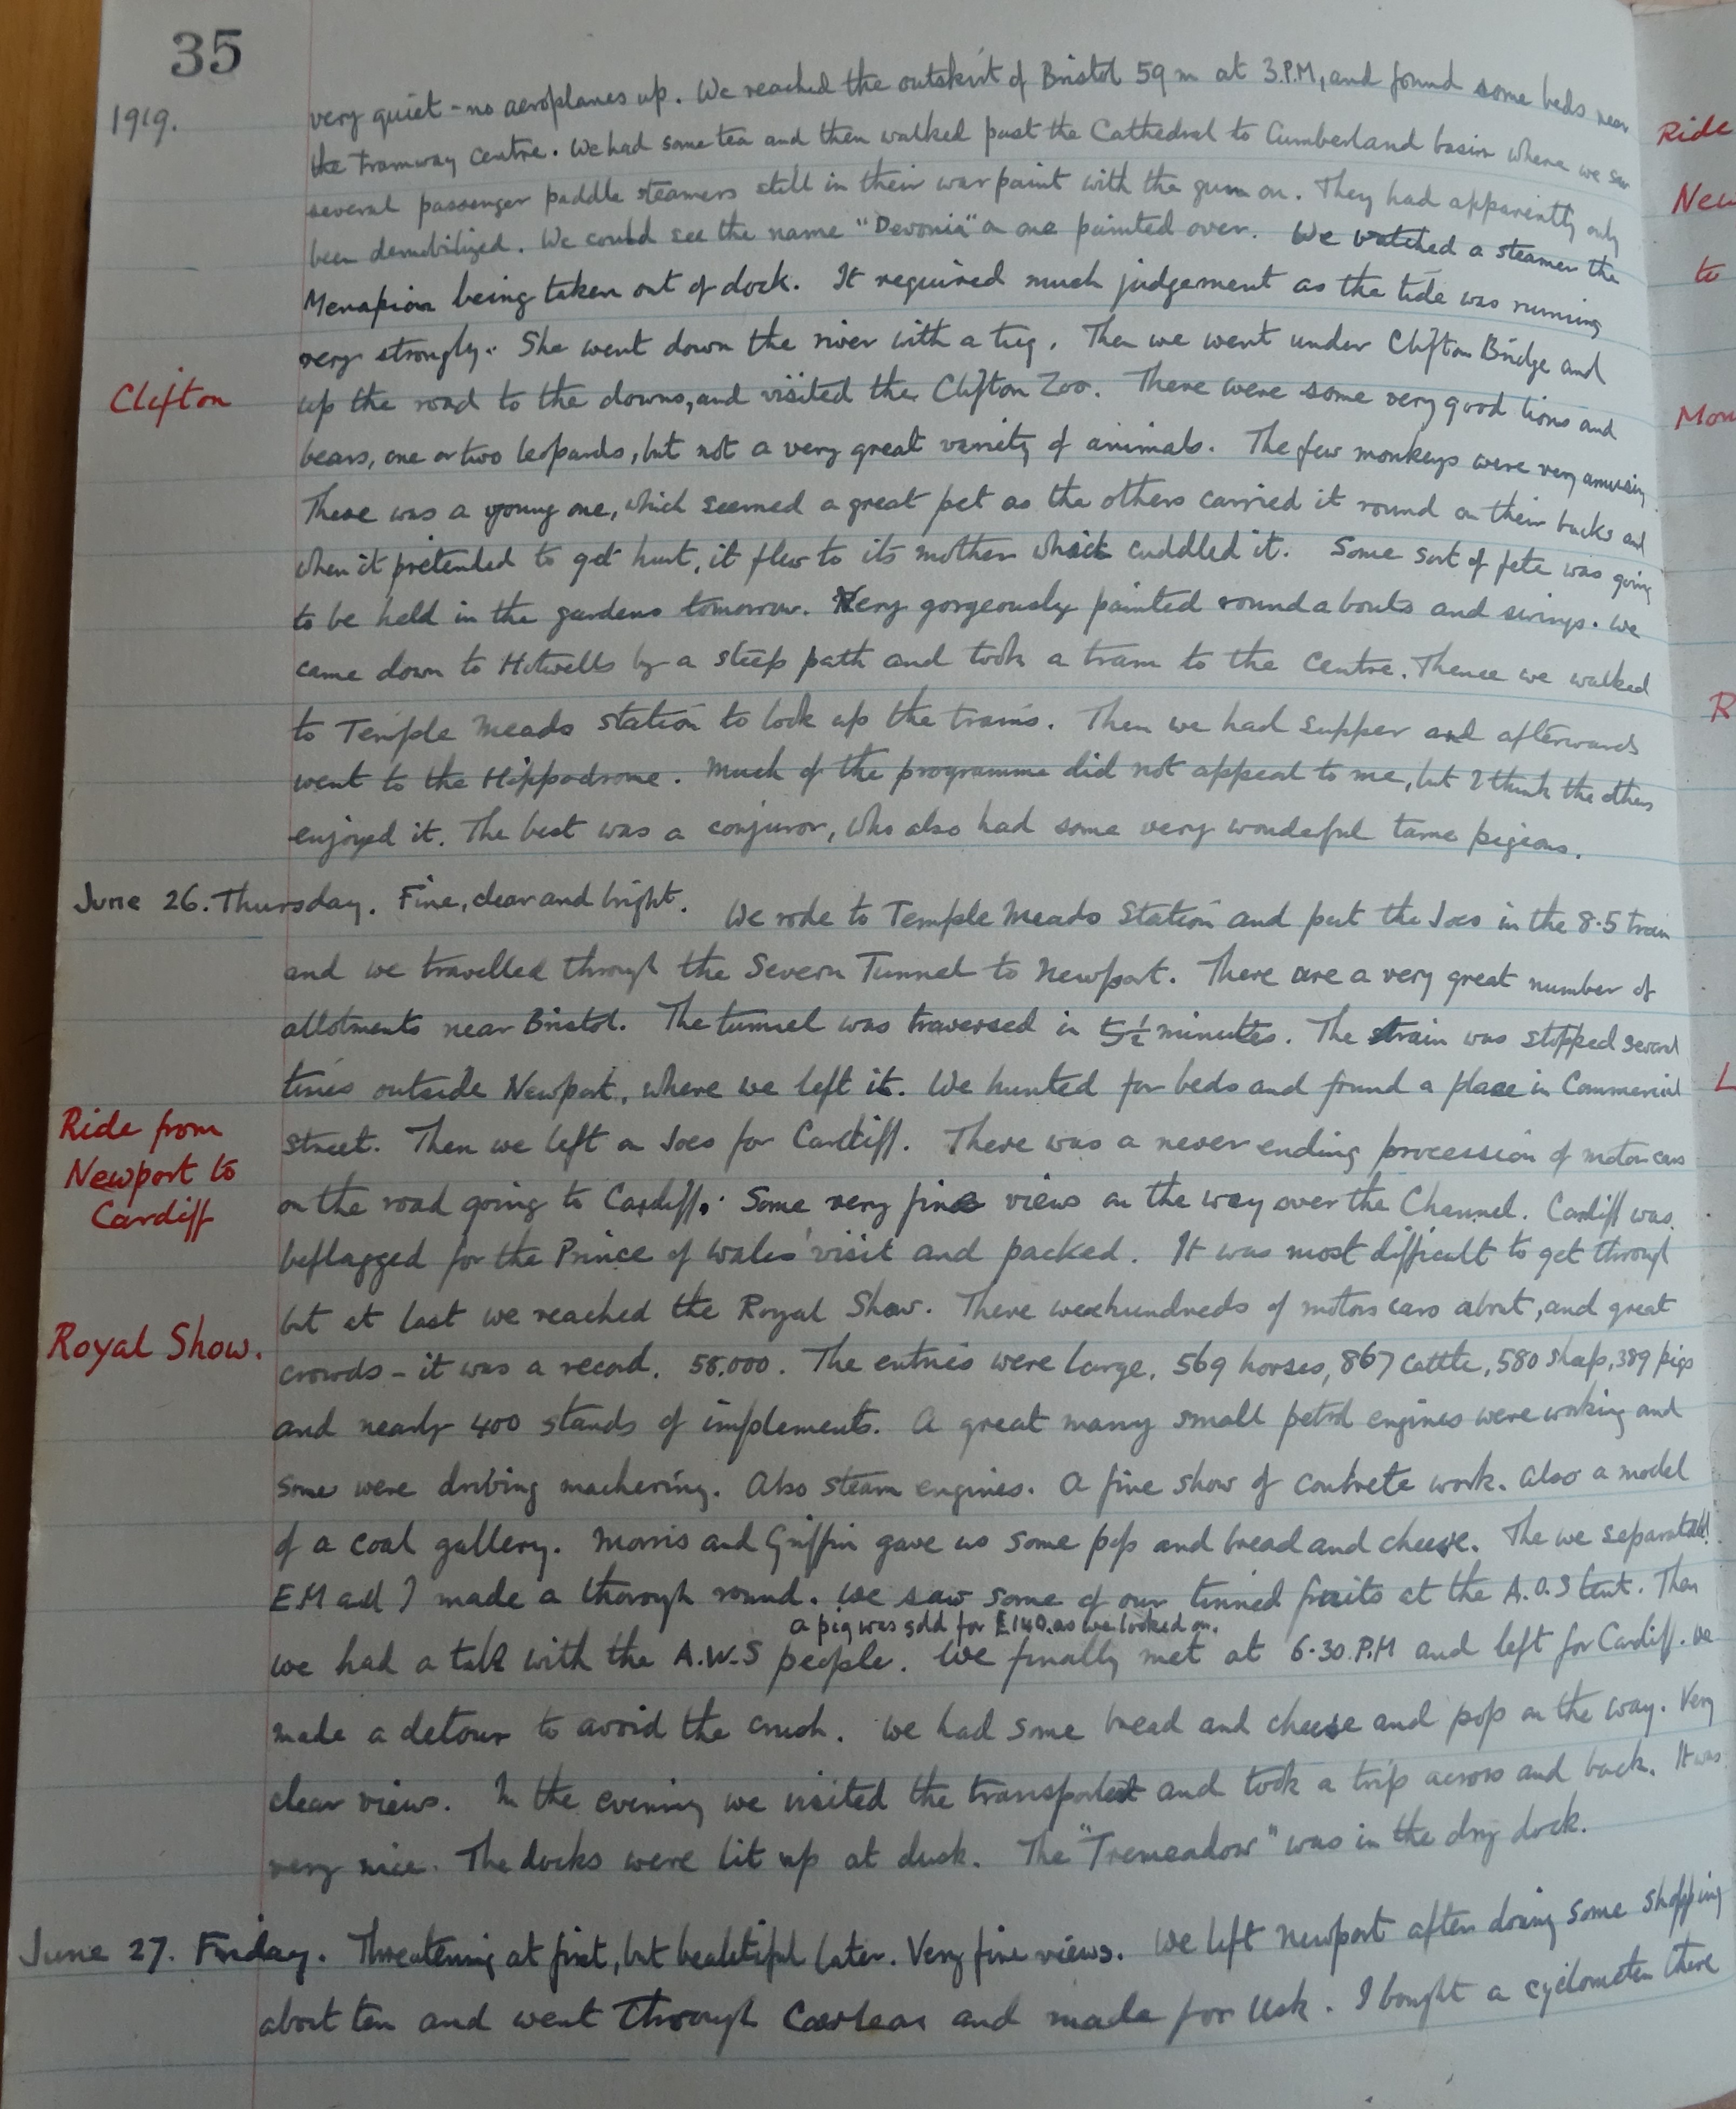 35
1919.
very quiet - no aeroplanes up. We reached the outskirt of Bristol 59 m at 3.P.M, and found some beds near
the Tramway Centre. We had some tea and then walked past the Cathedral to Cumberland basin where we saw
several passenger paddle steamers still in their war paint with the guns on. They had apparently only
been demobilized. We could see the name "Devonia" on one painted over. We watched a steamer the
Menapian being taken out of dock. It required much judgement as the tide was running
very strongly. She went down the river with a tug. Then we went under Clifton Bridge and
Clifton
up the road to the downs, and visited the Clifton Zoo. There were some very good lions and
bears, one or two leopards, but not a very great variety of animals. The few monkeys were very amusing.
There was a young one, which seemed a great pet as the others carried it round on their backs and
when it pretended to get hurt, it flew to its mother which cuddled it. Some sort of fete was going
to be held in the gardens tomorrow. Very gorgeously painted roundabouts and swings. We
came down to Hotwells by a steep path and took a tram to the Centre. Thence we walked
to Temple Meads station to look up the trains. Then we had supper and afterwards
went to the Hippodrome. Much of the programme did not appeal to me, but I think the others
enjoyed it. The best was a conjuror, who also had some very wonderful tame pigeons.
June 26. Thursday. Fine, clear and bright. We rode to Temple Meads Station and put the Joes in the 8.5 train
and we travelled through the Severn Tunnel to Newport. There are a very great number of
allotments near Bristol. The tunnel was traversed in 5½ minutes. The train was stopped several
times outside Newport, where we left it. We hunted for beds and found a place in Commercial
Ride from
Newport to
Cardiff
street. Then we left on Joes for Cardiff. There was a never ending procession of motor cars
on the road going to Cardiff. Some very fine views on the way over the Channel. Cardiff was
beflagged for the Prince of Wales' visit and packed. It was most difficult to get through
but at last we reached the Royal Show. There were hundreds of motors cars about, and great
Royal Show.
crowds - it was a record. 58,000. The entries were large. 569 horses, 867 cattle, 580 sheep, 389 pigs
and nearly 400 stands of implements. A great many small petrol engines were working and
some were driving machinery. Also steam engines. A fine show of concrete work. Also a model
of a coal gallery. Morris and Griffin gave us some pop and bread and cheese. The we separated.
EM and I made a thorough round. We saw some of our tinned fruits at the A.O.S tent. Then
a pig was sold for £140. as we looked on.
we had a talk with the A.W.S people. We finally met at 6.30.P.M and left for Cardiff. We
made a detour to avoid the crush. We had some bread and cheese and pop on the way. Very
clear views. In the evening we visited the and took a trip across and back. It was
very nice. The docks were lit up at dusk. The "Tremeadow" was in the dry dock.
June 27. Friday. Threatening at first, but beautiful later. Very fine views. We left Newport after doing some shopping
about ten and went through Caerleon and made for Usk. I bought a cyclometer there
Ride
New
to
Mon
R
L